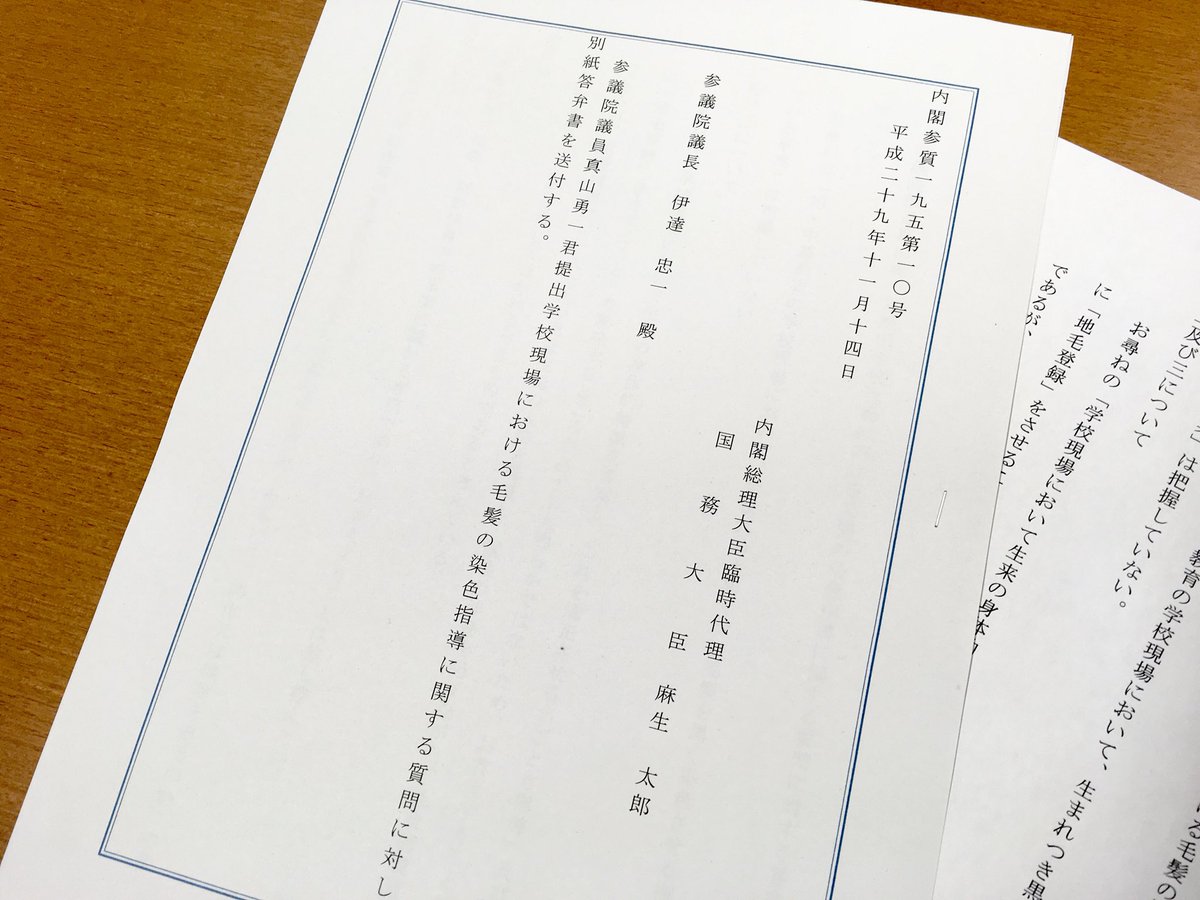 内閣参質一九五第一〇号
平成二十九年十一月十四日
内閣総理大臣臨時代理
国務大臣 麻生 太郎
参議院議長 伊達 忠一 殿
参議院議員真山勇一君提出学校現場における毛髪の染色指導に関する質問に対し
別紙答弁書を送付する。
ける毛髪の
教育の学校現場において、生まれつき黒
は把握していない。
及び三について
お尋ねの「学校現場において生来の身体
に「地毛登録」をさせるこ
であるが、